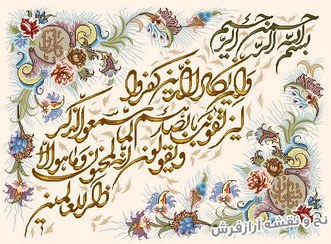 بسم الله الرحمن الرحیم
وإن یکاد الذین کفروا
لیزلقونک بابصارهم لما سمعوا الذکر
ویقولون إنه لمجنون وما هو إلا
ذکر للعالمین
نخ و نقشه آراز فرش